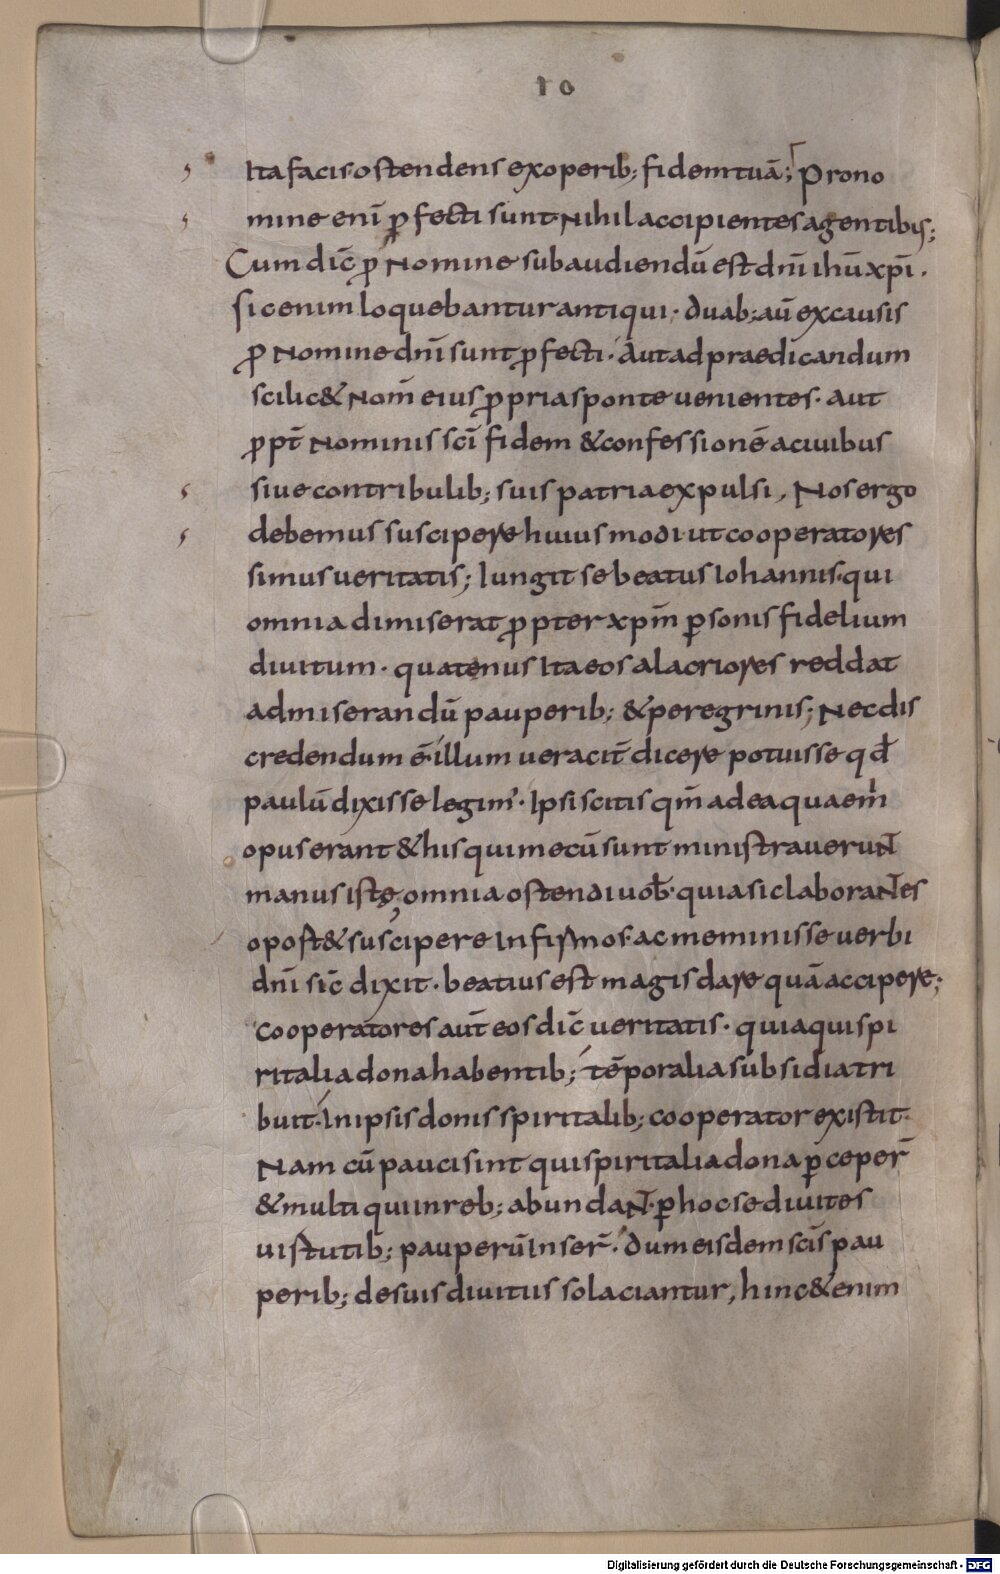 IO
Ita facis ostendens ex operib; fidem tuā; Pro no
mine eni̅ ꝓfecti sunt Nihil accipientes a gentibus;
Cum dic̅ ꝓ Nomine subaudiendū est dn̅i ihu̅ xp̅i.
sic enim loquebantur antiqui· duab; au̅ ex causis
ꝓ Nomine dn̅i sunt ꝓfecti· Aut ad praedicandum
scilic& Nom̅ eius ꝓpria sponte uenientes· aut
ꝓpt̅ Nominis sc̅i fidem & confessionē a ciuibus
siue contribulib; suis patria expulsi, Nos ergo
debemus suscipere huiusmodi ut cooperatores
simus ueritatis; Iungit se beatus Iohannis· qui
omnia dimiserat ꝓpter xp̅m ꝑsonis fidelium
diuitum· quatenus Ita eos alacriores reddat
ad miserandū pauperib; & peregrinis; Nec dis
credendum ē illum ueracit̅ dicere potuisse qd̅
paulū dixisse legim'· Ipsi scitis qm̅ ad ea quae m̅
opus erant & his qui mecū sunt ministraueruNT̅
manus istę, omnia ostendi uob̅· quia sic laboraNTes
oport& suscipere Infirmos· ac meminisse uerbi
dn̅i sic̅ dixit· beatius est magis dare quā accipere;
Cooperatores aut̅ eos dic̅ ueritatis· quia qui spi
ritalia dona habentib; tēporalia subsidia tri
buit· In ipsis donis spiritalib; cooperator existit·
Nam cū pauci sint qui spiritalia dona ꝑceper̅
& multi qui in reb; abundaNT· ꝑ hoc se diuites
uirtutib; pauperū Inser̅· dum eisdem sc̅is pau
perib; de suis diuitiis solaciantur, hinc & enim
Digitalisierung gefördert durch die Deutsche Forschungsgemeinschaft - DFG